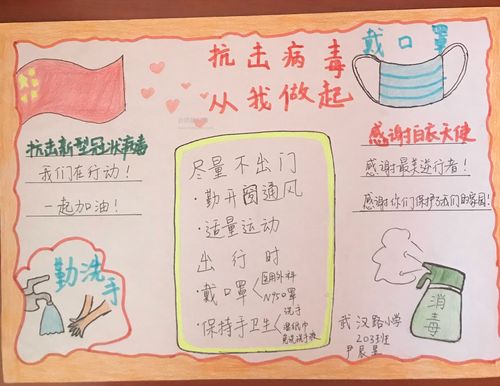 抗击病毒
从我做起
戴口罩
抗击新型冠状病毒
我们在行动！
一起加油！
感谢白衣天使
感谢最美逆行者！
感谢你们保护了我们的家园！
尽量不出门
·勤开窗通风
·适量运动
出行时
·戴口罩
医用外科
N95口罩
·保持手卫生
洗手
湿纸巾
免洗洗手液
勤洗手
消毒
武汉路小学
203班
尹晨星